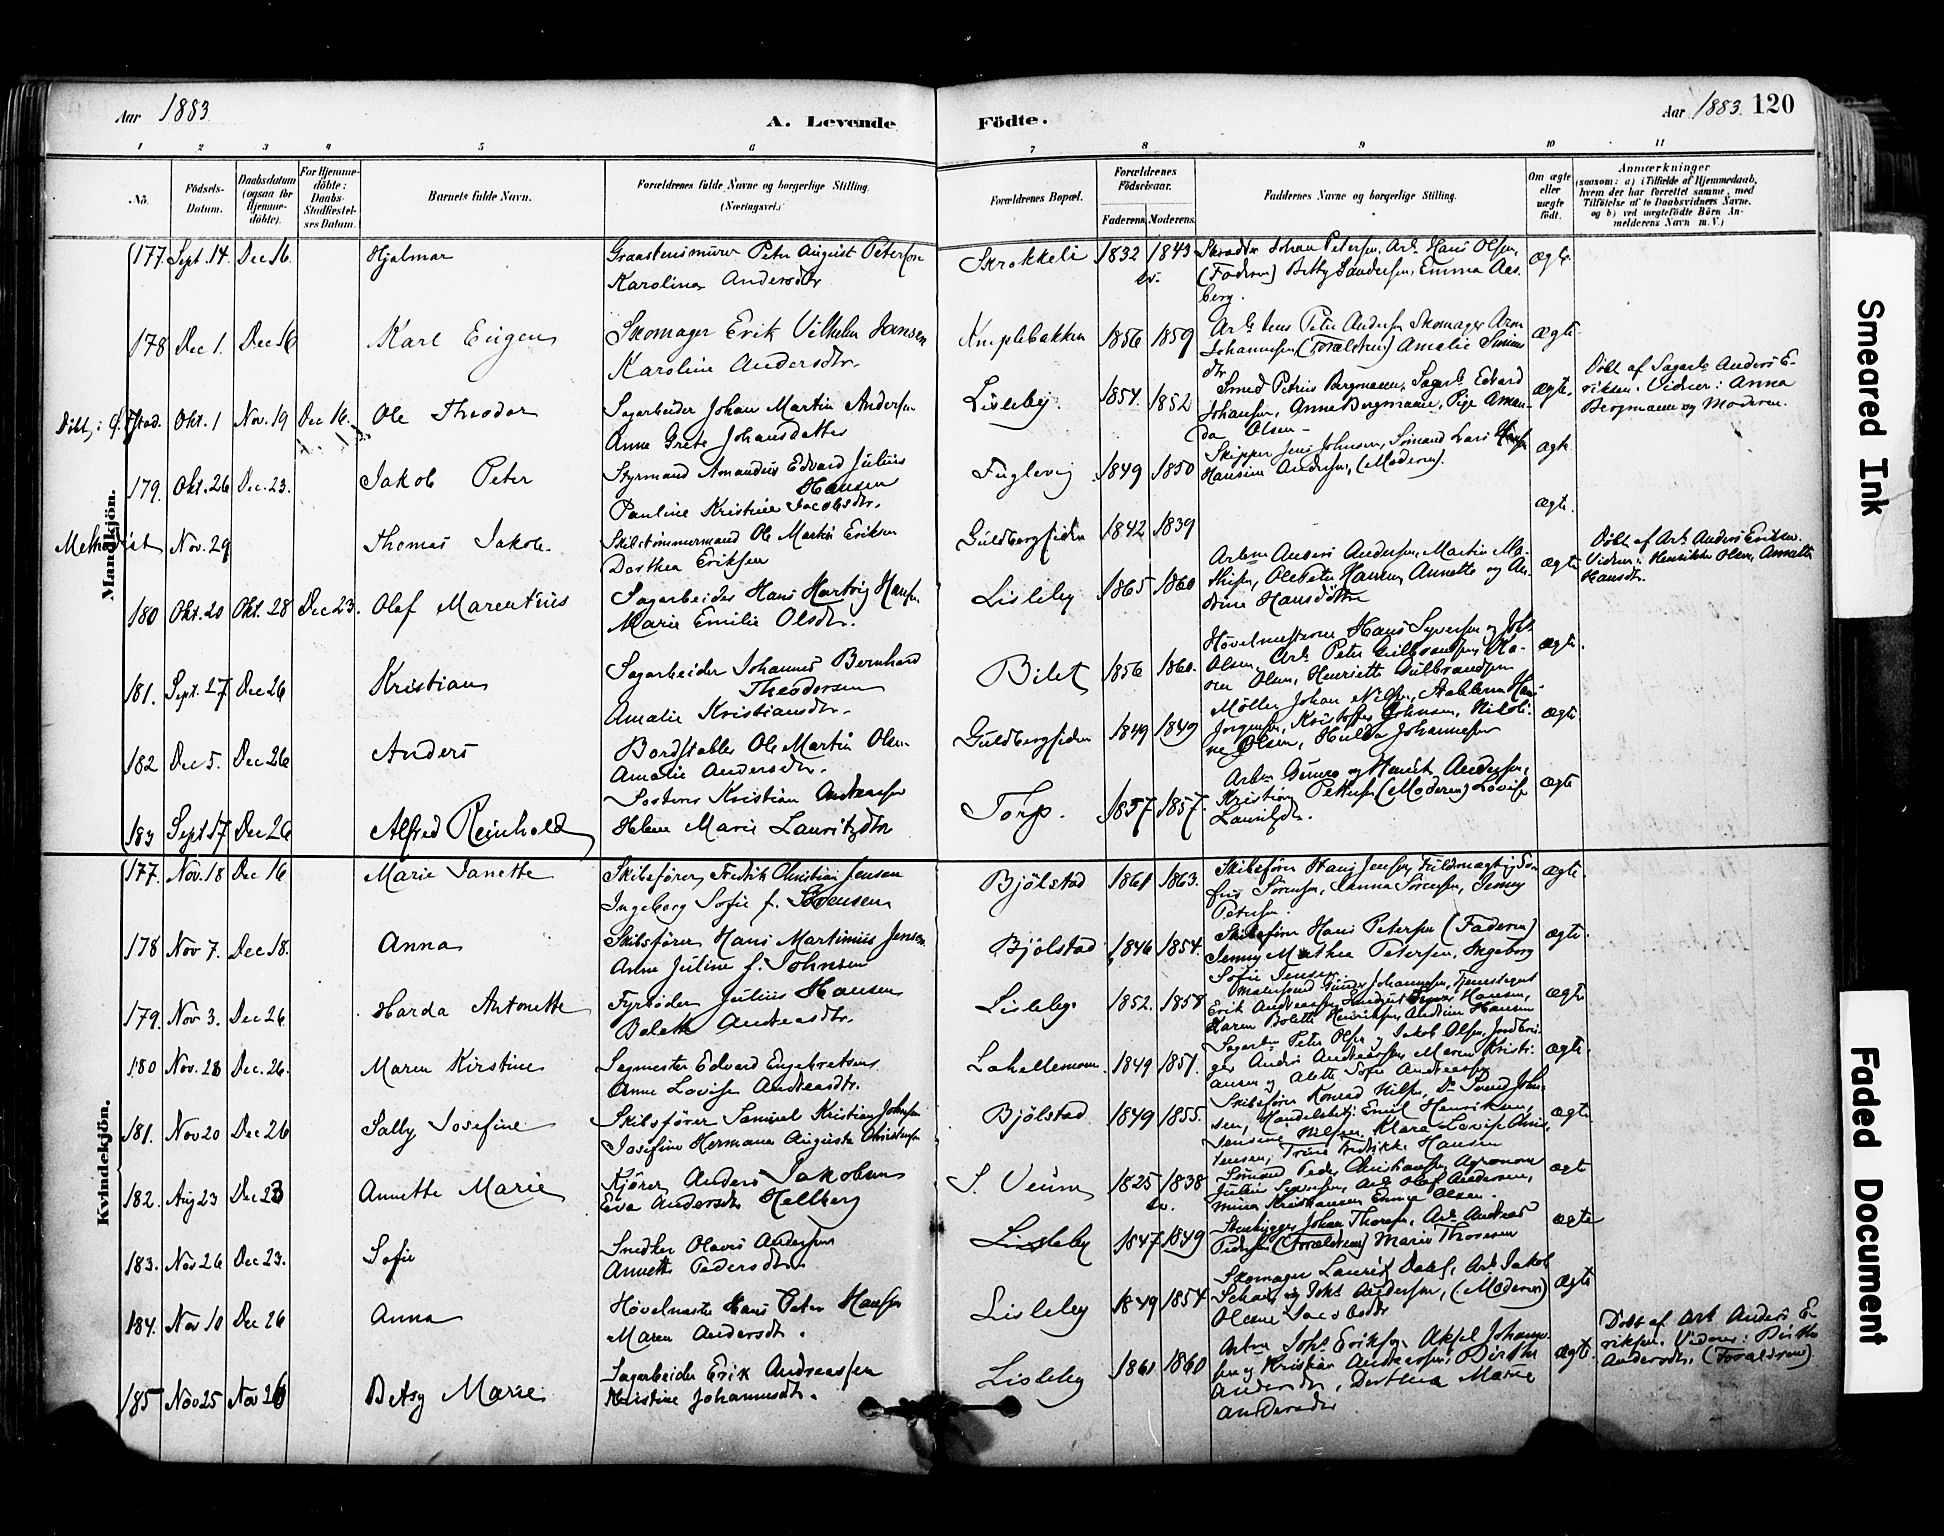 Aar 1883
A. Levende
Födte.
Aar 1883. 120
1 2 3 4 5 6 7 8 9 10 11
No.
Födsels-
Datum.
Daabsdatum
(ogsaa for
Hjemme-
döbte).
For Hjemme-
döbte:
Daabs-
Stadfæstel-
ses Datum.
Barnets fulde Navn.
Forældrenes fulde Navne og borgerlige Stilling.
(Næringsvei.)
Forældrenes Bopæl.
Forældrenes
Födselsaar.
Faderens. Moderens.
Faddernes Navne og borgerlige Stilling.
Om ægte
eller
uægte
födt.
Anmærkninger
(saasom: a) i Tilfælde af Hjemmedaab,
hvem der har forrettet samme, med
Tilföielse af to Daabsvidners Navne.
og b) ved uægtefödte Börn An-
melderens Navn m. V.)
Mandkjön.
177. Sept. 14. Dec 16. Hjalmar
Graastensmurer Peter August Peterson
Karolina Andersdtr
Skrokkeli 1832 1843
Skrædder Johan Petersen, Arb. Hans Olsen,
(Faderen) Betty Sandersen, Emma Aas-
berg.
Ægte
178 Dec 1. Dec 16 Karl Eugen
Skomager Erik Vilhelm Jansen
Karoline Andersdtr.
Kniplebakken 1856 1859
Johannesen (Forældrene) Amalie
dtr
Ægte
Döbt i Ö. Fstad. Okt. 1 Nov. 19 Dec 16. Ole Theodor
Sagarbeider Johan Martin Andersen
Anne Grete Johansdatter
Lisleby. 1854. 1852
Smed Petrus Bergmann, Sagarb. Edvard
Johansen, Anne Bergmann, Pige Aman-
da Olsen
Ægte.
Döbt af Sagarb. Anders E-
riksen. Vidner: Anna
Bergmann og Moderen.
179. Okt. 26 Dec. 23. Jakob Peter
Styrmand Amandus Edvard Julius
Hansen
Pauline Kristine Jacobsdtr.
Fuglevig 1849 1850
Skipper Jens Johnsen, Sömand Lars
Hansine Andersen, (Moderen).
Ægte
Methodist Nov. 29 Thomas Jakob
Skibstömmermand Ole Martin Eriksen
Dorthea Eriksen
Guldbergsiden 1842 1839
Ægte.
180 Okt. 20 Okt. 28 Dec 23. Olaf Marentius
Sagarbeider Hans Hartvig Hansen
Marie Emilie Olsdtr.
Lisleby 1865 1860
Arbm Anders Andersen, Martin Ma-
thisen, Ole Peter Hansen, Annette og An-
dine Hansdöttre
Ægte
Döbt af Arb. Anders Eriksen.
Vidner: Henrikke Olsen, Annette
Hansdtr.
181. Sept. 27 Dec 26 Kristian
Sagarbeider Johannes Bernhard
Theodorsen
Amalie Kristiansdtr.
Bilet 1856 1860.
Hövelmesterne Hans Syversen og Johs
Olsen, Arb. Peter Gulbrandsen, Ka-
ren Olsen, Henriette Gulbrandsen
Ægte.
182 Dec 5. Dec 26 Anders
Bordstabler Ole Martin Olsen
Amalie Andersdtr.
Guldbergsiden 1849 1849
Möller Johan Nilsen, Stablerne Hans
Jörgensen, Kristoffer Johnsen, Nikoli-
ne Olsen, Hulda Johannesen
Ægte
183 Sept 17 Dec 26 Alfred Reinhold
Kristian Andreasen
Helene Marie Lauritzdtr
Torp. 1857 1857.
Arbm Gunro og Maurits Andersen,
Kristian Pettersen (Moderen) Lovise
Lauritzdtr.
Ægte
Kvindekjön.
177. Nov. 18 Dec 16 Marie Janette
Skibsförer Fredrik Christian Jensen
Ingeborg Sofie f. Sörensen
Bjölstad 1861 1863.
Skibsförer Hans Jensen, Fuldmægtig
Sörensen, Hanna Sörensen, Jenny
Petersen.
Ægte.
178 Nov 7. Dec 18. Anna
Skibsförer Hans Martinius Jensen
Anne Juline f. Johnsen
Bjölstad 1846 1854.
Skibsförer Hans Petersen (Faderen)
Jenny Mathea Petersen, Ingeborg
Sofie Jensen
Ægte
179. Nov 3. Dec 26 Harda Antonette
Fyrböder Julius Hansen
Bolette Andreasdtr.
Lisleby. 1852. 1858
Erik Andreassen, Hansen,
Karen Bolette Henriksen, Andrine Hansen
Ægte
180 Nov. 28 Dec. 26. Maren Kirstine
Sagmester Edvard Engebretsen
Anne Lovise Andreasdtr.
Lahellemoen. 1849 1851.
Sagarbm Peter Olsen og Jakob Olsen, Jordbru-
ger Andr. Andreassen, Maren Kristi-
ansen og Alette Sofie Andreassen
Ægte.
181. Nov 20 Dec 26 Sally Josefine
Skibsförer Samuel Kristian Johnsen
Josefine Hermana Augusta Christensen
Bjölstad 1849 1855.
Skibsförer Konrad Nilsen, Do Svend John-
sen, Handelsbetj. Emil Henriksen,
Jensine Nilsen, Klara Lovise Chris-
tensen, Trine Fredrikke Hansen
Ægte.
182. Aug 23 Dec 23 Annette Marie
Kjörer Anders Jakobsen
Eva Andersdtr Hellberg
S. Veum 1825 1838
Sömand Peder Christiansen, Agronom
Julius Syversen, Arb. Olaf Andersen,
Mina Kristiansen, Emma Olsen.
Ægte
183. Nov 26 Dec 23. Sofie
Snedker Olaves Andersen
Annette Pedersdtr.
Lisleby 1847 1849
Stenhugger Johan Thoresen, Arb. Andreas
Pedersen (Forældrene) Marie Thoresen
Ægte
184. Nov 10 Dec 26 Anna
Hövelmester Hans Peter Hansen
Maren Andersdtr.
Lisleby 1849 1854
Skomager Laurits Arb. Jakob
og Johs Andersen, (Moderen)
Olene Jacobsdtr
Ægte
185 Nov 25 Nov 26 Betsy Marie
Sagarbeider Erik Andreassen
Kristine Johannesdtr.
Lisleby 1861 1860
Arbm Johs Eriksen, Aksel Johann-
sen og Kristian Andreassen, Birthe
Andersdtr, Dorthea Marie
Andersdtr
Ægte.
Döbt af Arb Anders E-
riksen. Vidner: Birthe
Andersdtr. (Forældrene)
Smeared Ink
Faded Document